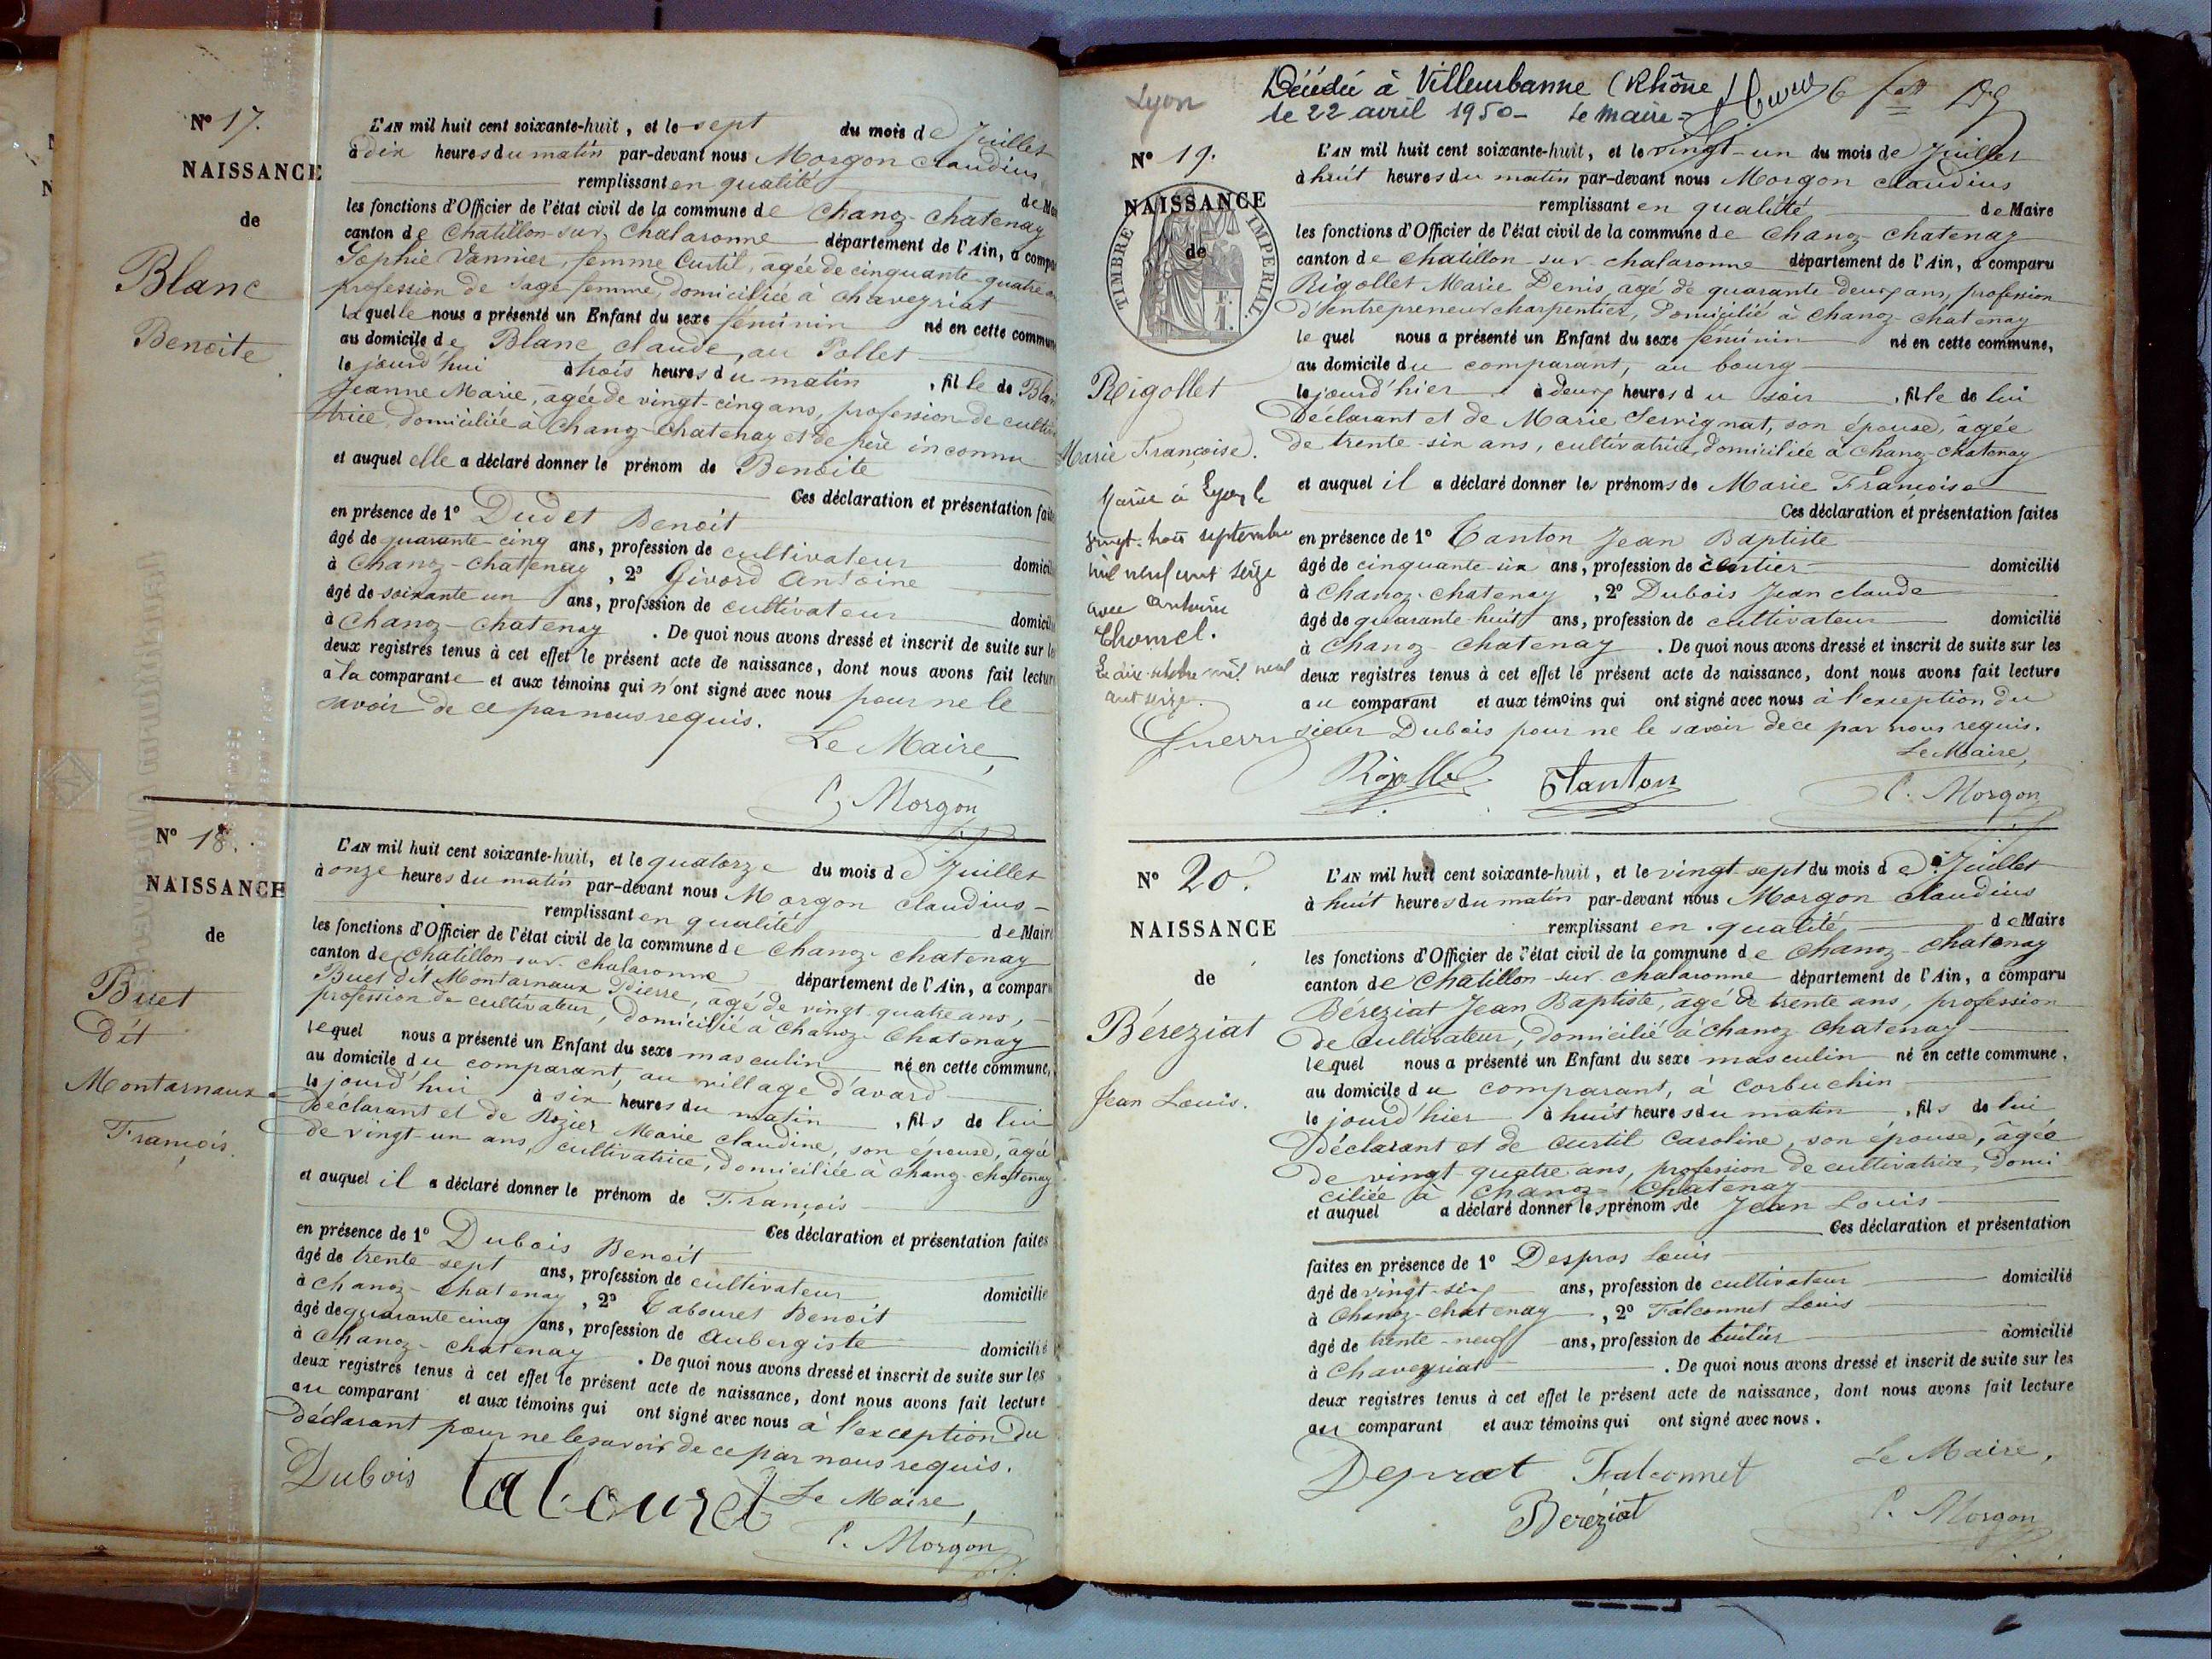 Nº 17.
NAISSANCE
de
Blanc
Benoite
L'AN mil huit cent soixante-huit, et le sept du mois de Juillet
à dix heures du matin par-devant nous Morgon Claudius
remplissant en qualité de
les fonctions d'Officier de l'état civil de la commune de Chanoz-Chatenay
canton de Chatillon-sur-Chalaronne département de l'Ain, a
Sophie Vannier, femme Curtil, âgée de cinquante-quatre
profession de Sage-femme, domiciliée à Chaveyriat
laquelle nous a présenté un Enfant du sexe féminin né en cette commune
au domicile de Blanc Claude, au Pollet
le jourd'hui à trois heures du matin, fille de Blanc
Jeanne Marie, âgée de vingt-cinq ans, profession de cultiva
trice, domiciliée à Chanoz-Chatenay et de père inconnu
et auquel elle a déclaré donner le prénom de Benoite
Ces déclaration et présentation faites
en présence de 1º Dudet Benoit
âgé de quarante-cinq ans, profession de cultivateur domicilié
à Chanoz-Chatenay, 2º Givord Antoine
âgé de soixante un ans, profession de cultivateur domicilié
à Chanoz-Chatenay. De quoi nous avons dressé et inscrit de suite sur les
deux registres tenus à cet effet le présent acte de naissance, dont nous avons fait lecture
à la comparante et aux témoins qui n'ont signé avec nous pour ne le
savoir de ce par nous requis.
Le Maire,
C. Morgon
Nº 18.
NAISSANCE
de
Buet
dit
Montarnaux
François.
L'AN mil huit cent soixante-huit, et le quatorze du mois de Juillet
à onze heures du matin par-devant nous Morgon Claudius
remplissant en qualité de Maire
les fonctions d'Officier de l'état civil de la commune de Chanoz-Chatenay
canton de Chatillon-sur-Chalaronne département de l'Ain, a comparu
Buet dit Montarnaux Pierre, âgé de vingt-quatre ans,
profession de cultivateur, domicilié à Chanoz-Chatenay
lequel nous a présenté un Enfant du sexe masculin né en cette commune,
au domicile du comparant, au village d'avard
le jourd'hui à six heures du matin, fils de lui
déclarant et de Rozier Marie Claudine, son épouse, âgée
de vingt-un ans, cultivatrice, domiciliée à Chanoz-Chatenay
et auquel il a déclaré donner le prénom de François
Ces déclaration et présentation faites
en présence de 1º Dubois Benoit
âgé de trente-sept ans, profession de cultivateur domicilié
à Chanoz-Chatenay, 2º Tabouret Benoit
âgé de quarante cinq ans, profession de Aubergiste domicilié
à Chanoz-Chatenay. De quoi nous avons dressé et inscrit de suite sur les
deux registres tenus à cet effet le présent acte de naissance, dont nous avons fait lecture
au comparant et aux témoins qui ont signé avec nous à l'exception du
déclarant pour ne le savoir de ce par nous requis.
Dubois Tabouret Le Maire,
C. Morgon
Lyon
Décédée à Villeurbanne (Rhône
le 22 avril 1950 - Le maire =
Nº 19.
NAISSANCE
de
TIMBRE IMPERIAL.
Rigollet
Marie Françoise.
Mariée à Lyon le
vingt-trois septembre
mil neuf cent seize
avec Antoine
Thomel.
Le dix octobre mil neuf
cent seize.
L'AN mil huit cent soixante-huit, et le vingt-un du mois de Juillet
à huit heures du matin par-devant nous Morgon Claudius
remplissant en qualité de Maire
les fonctions d'Officier de l'état civil de la commune de Chanoz-Chatenay
canton de Chatillon-sur-Chalaronne département de l'Ain, a comparu
Rigollet Marie Denis, âgé de quarante-deux ans, profession
d'entrepreneur charpentier, domicilié à Chanoz-Chatenay
lequel nous a présenté un Enfant du sexe féminin né en cette commune,
au domicile du comparant, au bourg
le jourd'hier à deux heures du soir, fille de lui
déclarant et de Marie Servignat, son épouse, âgée
de trente-six ans, cultivatrice, domiciliée à Chanoz-Chatenay
et auquel il a déclaré donner les prénoms de Marie Françoise
Ces déclaration et présentation faites
en présence de 1º Tanton Jean Baptiste
âgé de cinquante-six ans, profession de domicilié
à Chanoz-Chatenay, 2º Dubois Jean Claude
âgé de quarante-huit ans, profession de cultivateur domicilié
à Chanoz-Chatenay. De quoi nous avons dressé et inscrit de suite sur les
deux registres tenus à cet effet le présent acte de naissance, dont nous avons fait lecture
au comparant et aux témoins qui ont signé avec nous à l'exception du
sieur Dubois pour ne le savoir de ce par nous requis.
Le Maire,
Rigollet Tanton C. Morgon
Nº 20.
NAISSANCE
de
Béreziat
Jean Louis.
L'AN mil huit cent soixante-huit, et le vingt-sept du mois de Juillet
à huit heures du matin par-devant nous Morgon Claudius
remplissant en qualité de Maire
les fonctions d'Officier de l'état civil de la commune de Chanoz-Chatenay
canton de Chatillon-sur-Chalaronne département de l'Ain, a comparu
Béreziat Jean Baptiste, âgé de trente ans, profession
de cultivateur, domicilié à Chanoz-Chatenay
lequel nous a présenté un Enfant du sexe masculin né en cette commune,
au domicile du comparant, à Corbuchin
le jourd'hier à huit heures du matin, fils de lui
déclarant et de Curtil Caroline, son épouse, âgée
de vingt-quatre ans, profession de cultivatrice, domi
ciliée à Chanoz-Chatenay
et auquel a déclaré donner les prénoms de Jean Louis
Ces déclaration et présentation
faites en présence de 1º Despras Louis
âgé de vingt-six ans, profession de cultivateur domicilié
à Chanoz-Chatenay, 2º Falconnet Louis
âgé de trente-neuf ans, profession de tuilier domicilié
à Chaveyriat. De quoi nous avons dressé et inscrit de suite sur les
deux registres tenus à cet effet le présent acte de naissance, dont nous avons fait lecture
au comparant et aux témoins qui ont signé avec nous.
Le Maire,
Deprat Falconnet
Béréziat C. Morgon